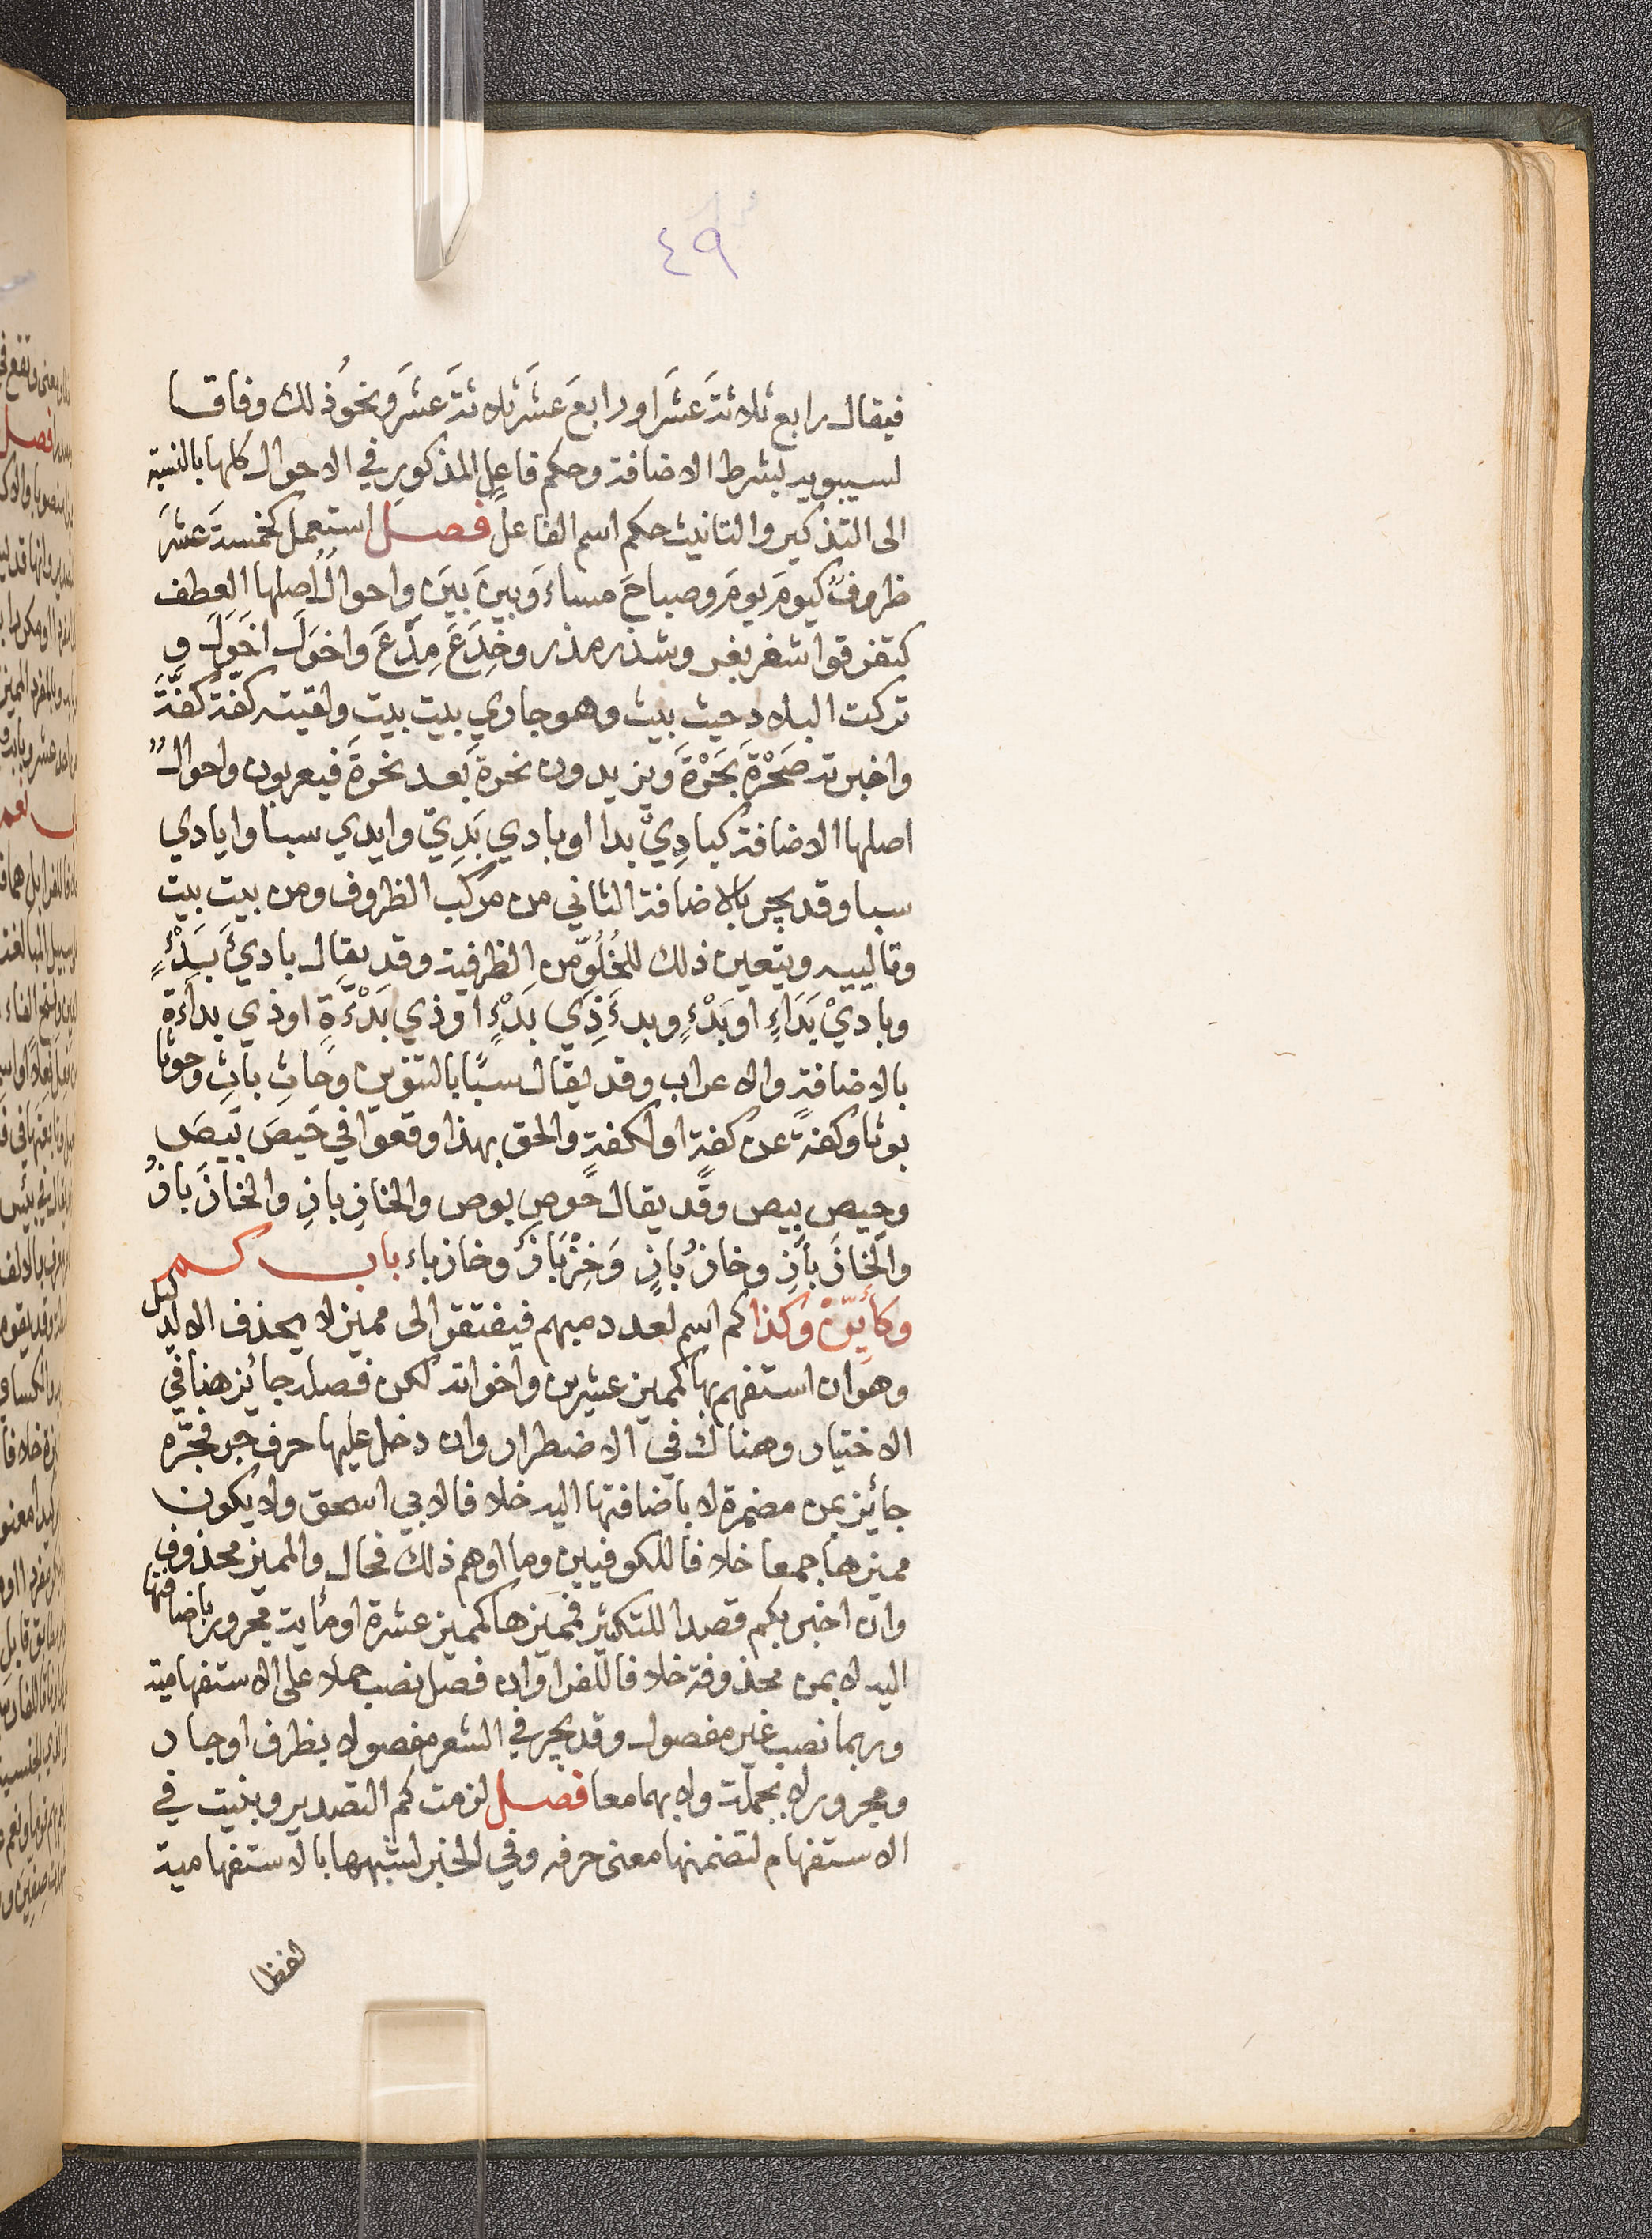 ٤٩
فيقال رابع ثلاثةَ عشَر اورابعَ عَشَر ثلاثةَ عشَر ونحوُ ذلك وفاقا
لسيبويه بشرط الاضافة وحكم فاعل المذكور في الاحوال كلها بالنسبة
الى التذكير والتانيث حكم اسم الفاعل فصل استعمل كخمسةَ عشَرَ
ظروفٌ كيومَ يومَ وصباحَ مساءَ وبينَ بينَ واحوالٌ اصلها العطف
كتفرقوا شغر بغر وشذر مذر وخِذَعَ مِذَعَ واخوَلَ اخوَلَ و
تركت البلاد حيث بيث وهو جاري بيت بيت ولقيته كفّةَ كفّةَ
واخبرته صَحْرَةَ بَحَرْةَ ويزيدون نحرة بعد نحرةَ فيعربون واحوالٌ
اصلها الاضافة كبادِيْ بدا او بادي بَدِيْ وايدي سبا وايادي
سبا وقد يجر بالاضافة الثاني من مركب الظروف ومن بيت بيت
وتالييه ويتعين ذلك للخُلُوّ من الظرفية وقد يقال باديَْ بَدْءٍ
وباديْ بَدَاءٍ او بَدْءٍ وبدءَ ذِي بَدْءٍ او ذي بَدْءَةٍ او ذي بداءَة
بالاضافة والاعراب وقد يقال سبًا بالتنوين وحَاثِ باثِ وحوثا
بوثا وكفةً عن كفةٍ او لكفةٍ والحق بهذا وقعوا في حَيصَ بَيصَ
وحِيص بِيص وقد يقال حَوص بوص والخازِ بازِ والخازَ بازُ
والخازَ بازِ وخازُ بازٍ وَخِزْبَازٌ وخازباء باب كم
وكأيّنْ وكذا كم اسم لعدد مبهم فيفتقر الى مميز لا يحذف الا لدليل
وهو ان استفهم بها كمميز عشرين واخواته لكن فصله جائز هنا في
الاختيار وهناك في الاضطرار وان دخل عليها حرف جر فجرّه
جائز بمن مضمرة لا باضافتها اليه خلافا لابي اسحق ولا يكون
مميزها جمعا خلافا للكوفيين وما اوهم ذلك فحال والمميز محذوف
وان اخبر بكم قصدا للتكثير فمميزها كمميز عشرة او مائية مجرور باضافتها
اليه لا بمن محذوفة خلافا للفرا وان فصل نصب حملا على الاستفهامية
وربما نصب غير مفصول وقد يجر في الشعر مفصولا بظرف او جار
ومجرور لا بجملة ولا بهما معا فصل لزمت كم التصدير وبنيت في
الاستفهام لتضمنها معنى حرفه وفي الخبر لشبهها بالاستفهامية
لفظا